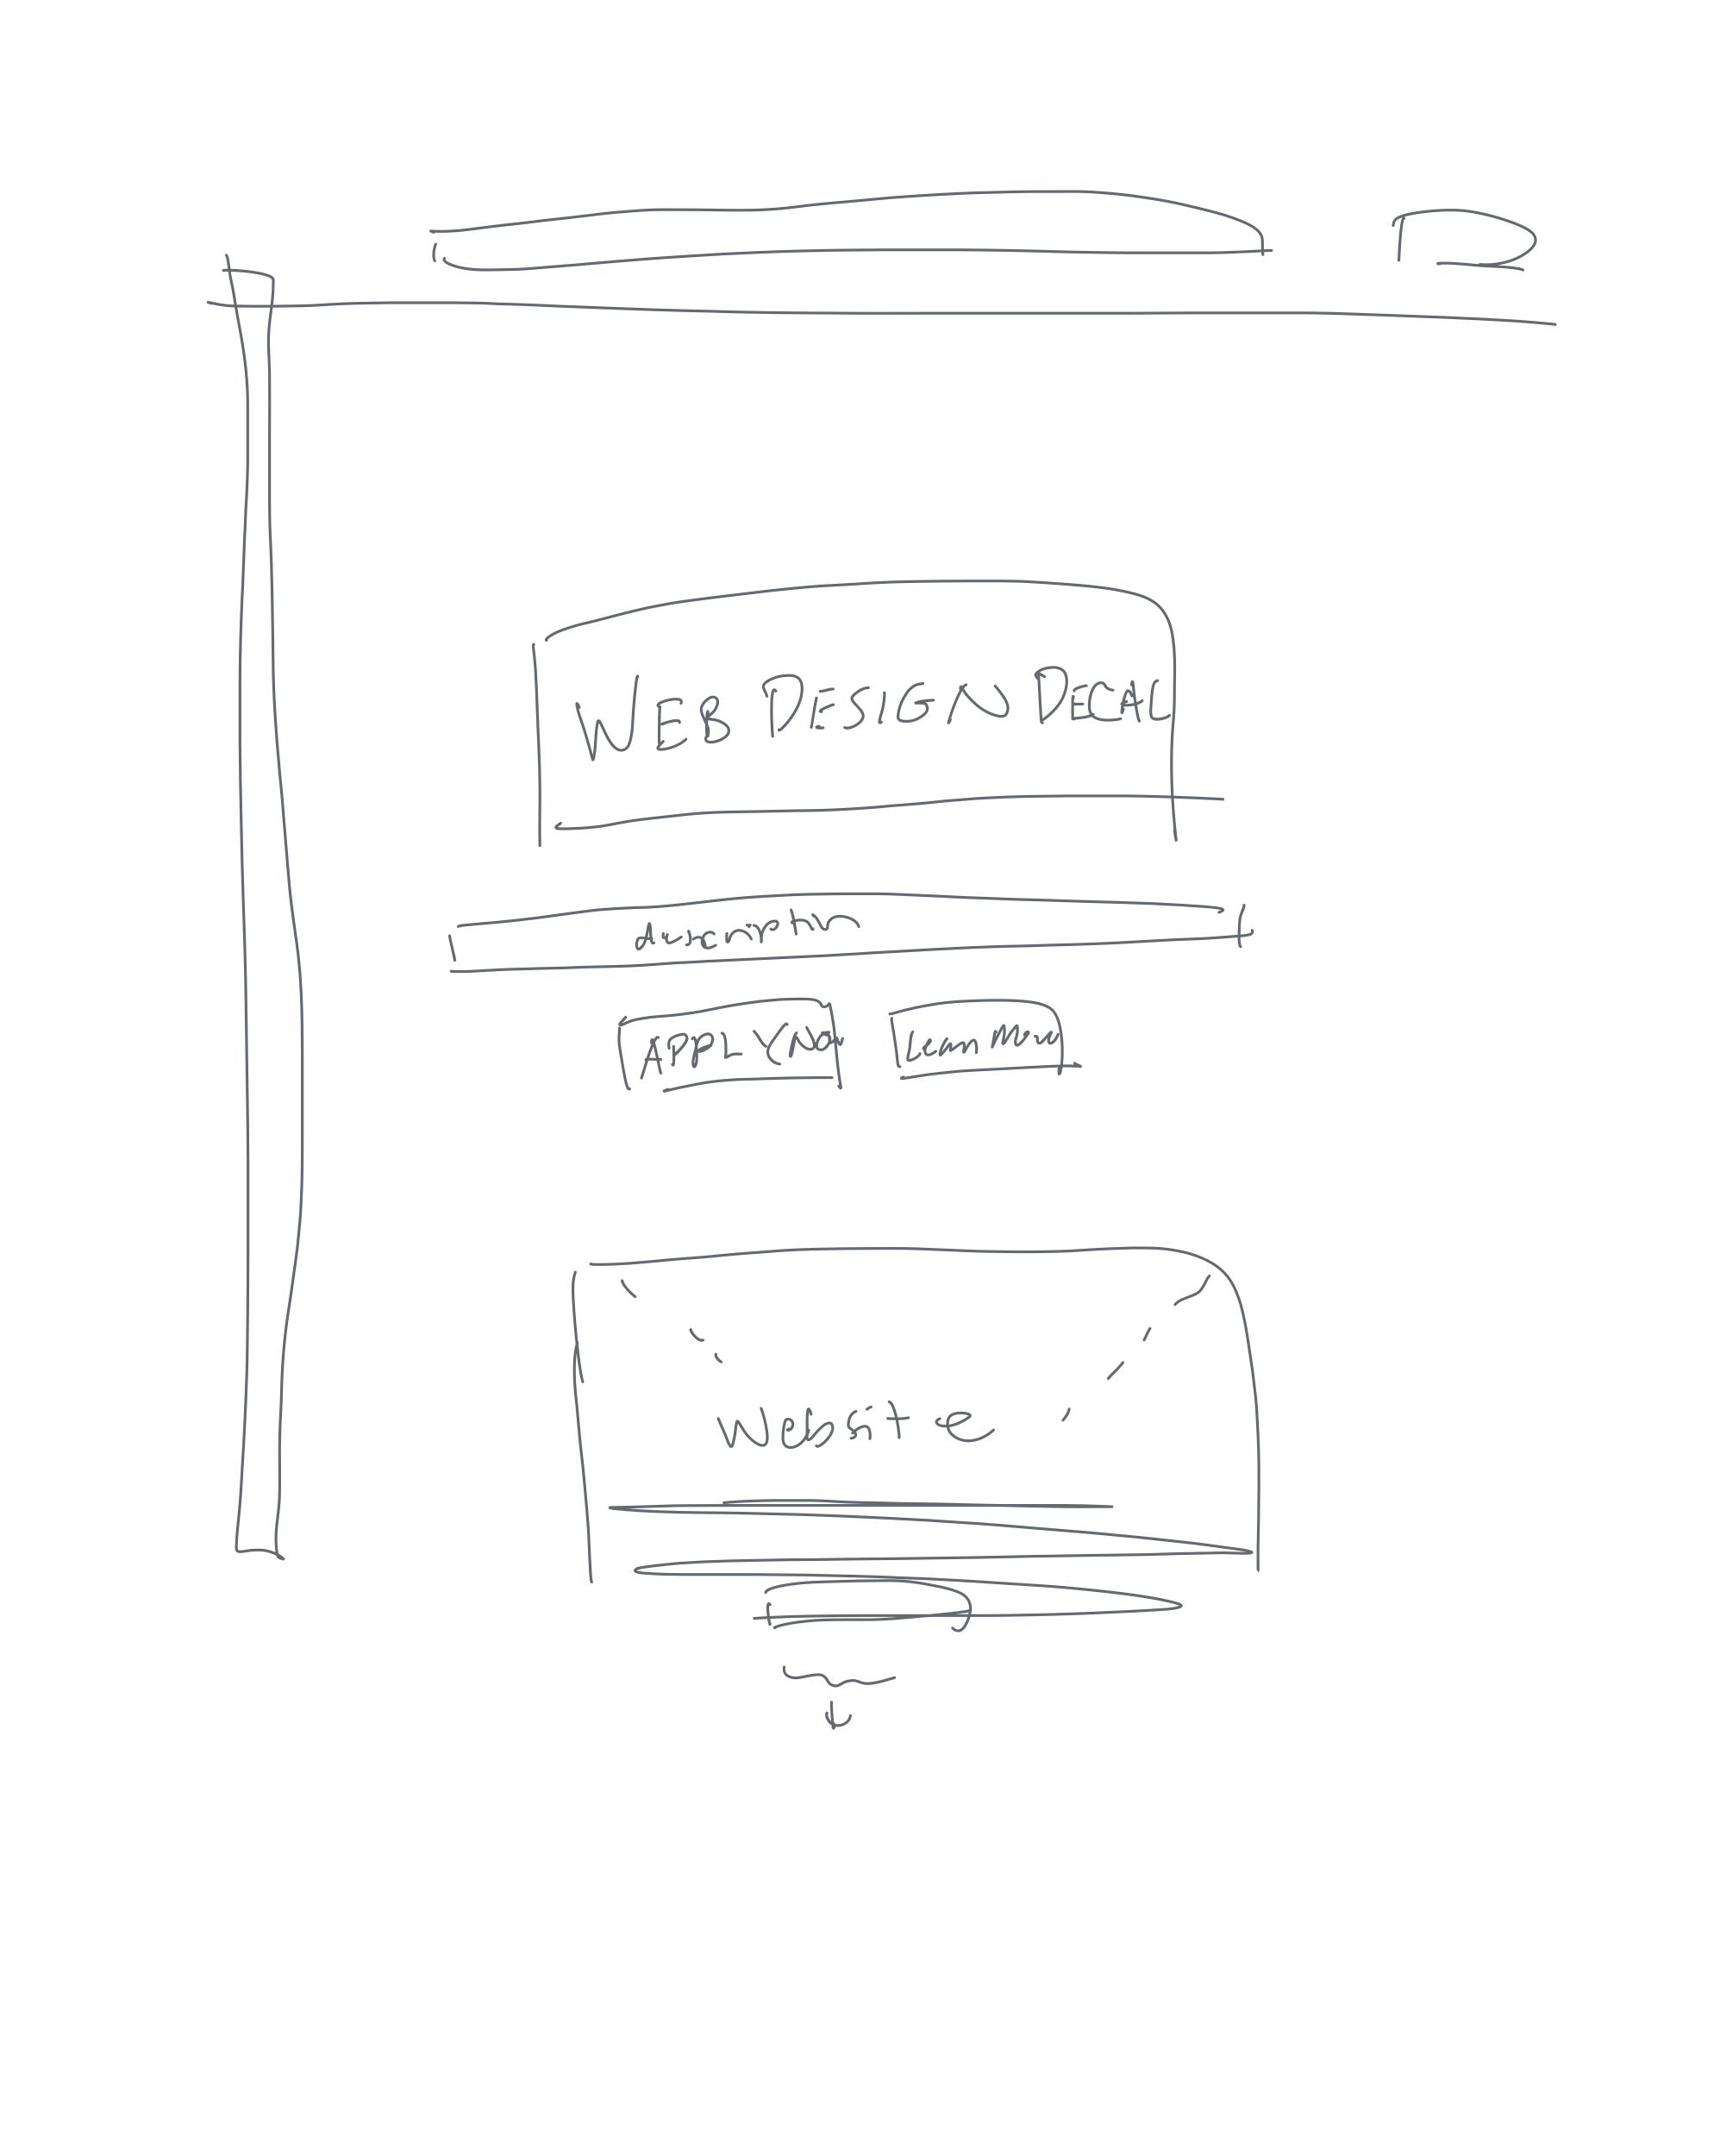 WEB DESIGN DECAL
description
APPLY Now Learn More
Website